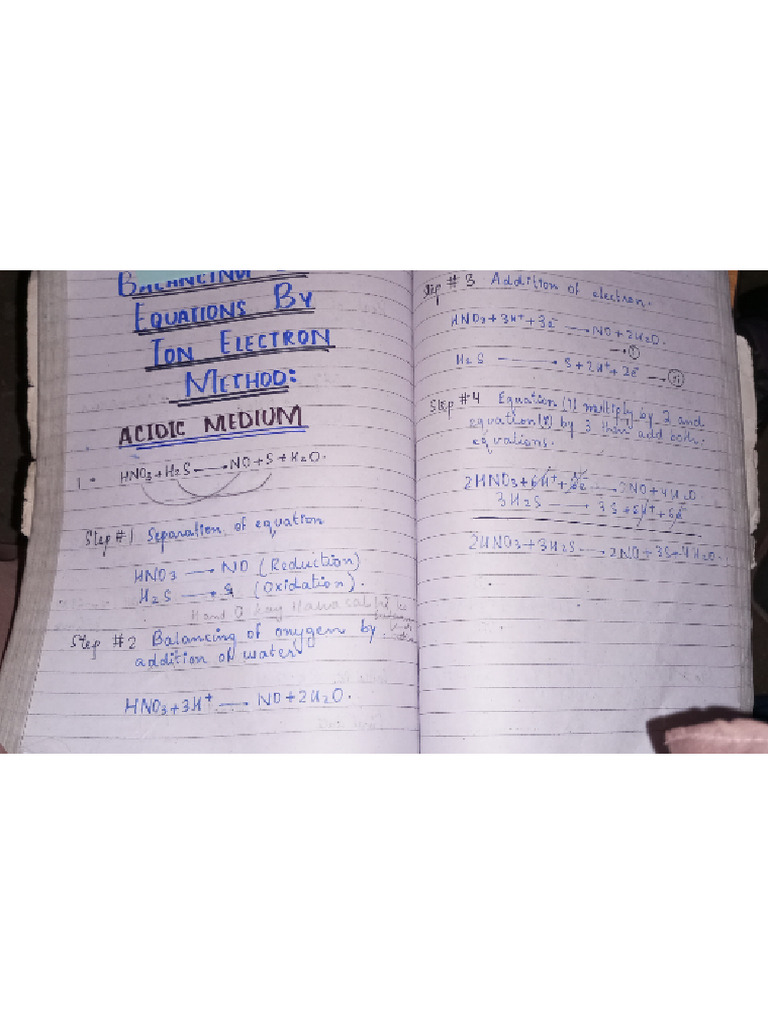 BALANCING
EQUATIONS BY
ION ELECTRON
METHOD:
ACIDIC MEDIUM
1. HNO3 + H2S → NO + S + H2O.
Step #1 Separation of equation
HNO3 → NO (Reduction)
H2S → S (Oxidation).
H and O kay ilawa sab
Step #2 Balancing of oxygen by
addition of water
HNO3 + 3H+ → NO + 2H2O.
Step #3 Addition of electron.
HNO3 + 3H+ + 3e- → NO + 2H2O.
→ (i)
H2S → S + 2H+ + 2e- → (ii)
Step #4 Equation (i) multiply by 2 and
equation (ii) by 3 then add both
equations.
2HNO3 + 6H+ + 6e- → 2NO + 4H2O
3H2S → 3S + 6H+ + 6e-
2HNO3 + 3H2S → 2NO + 3S + 4H2O.